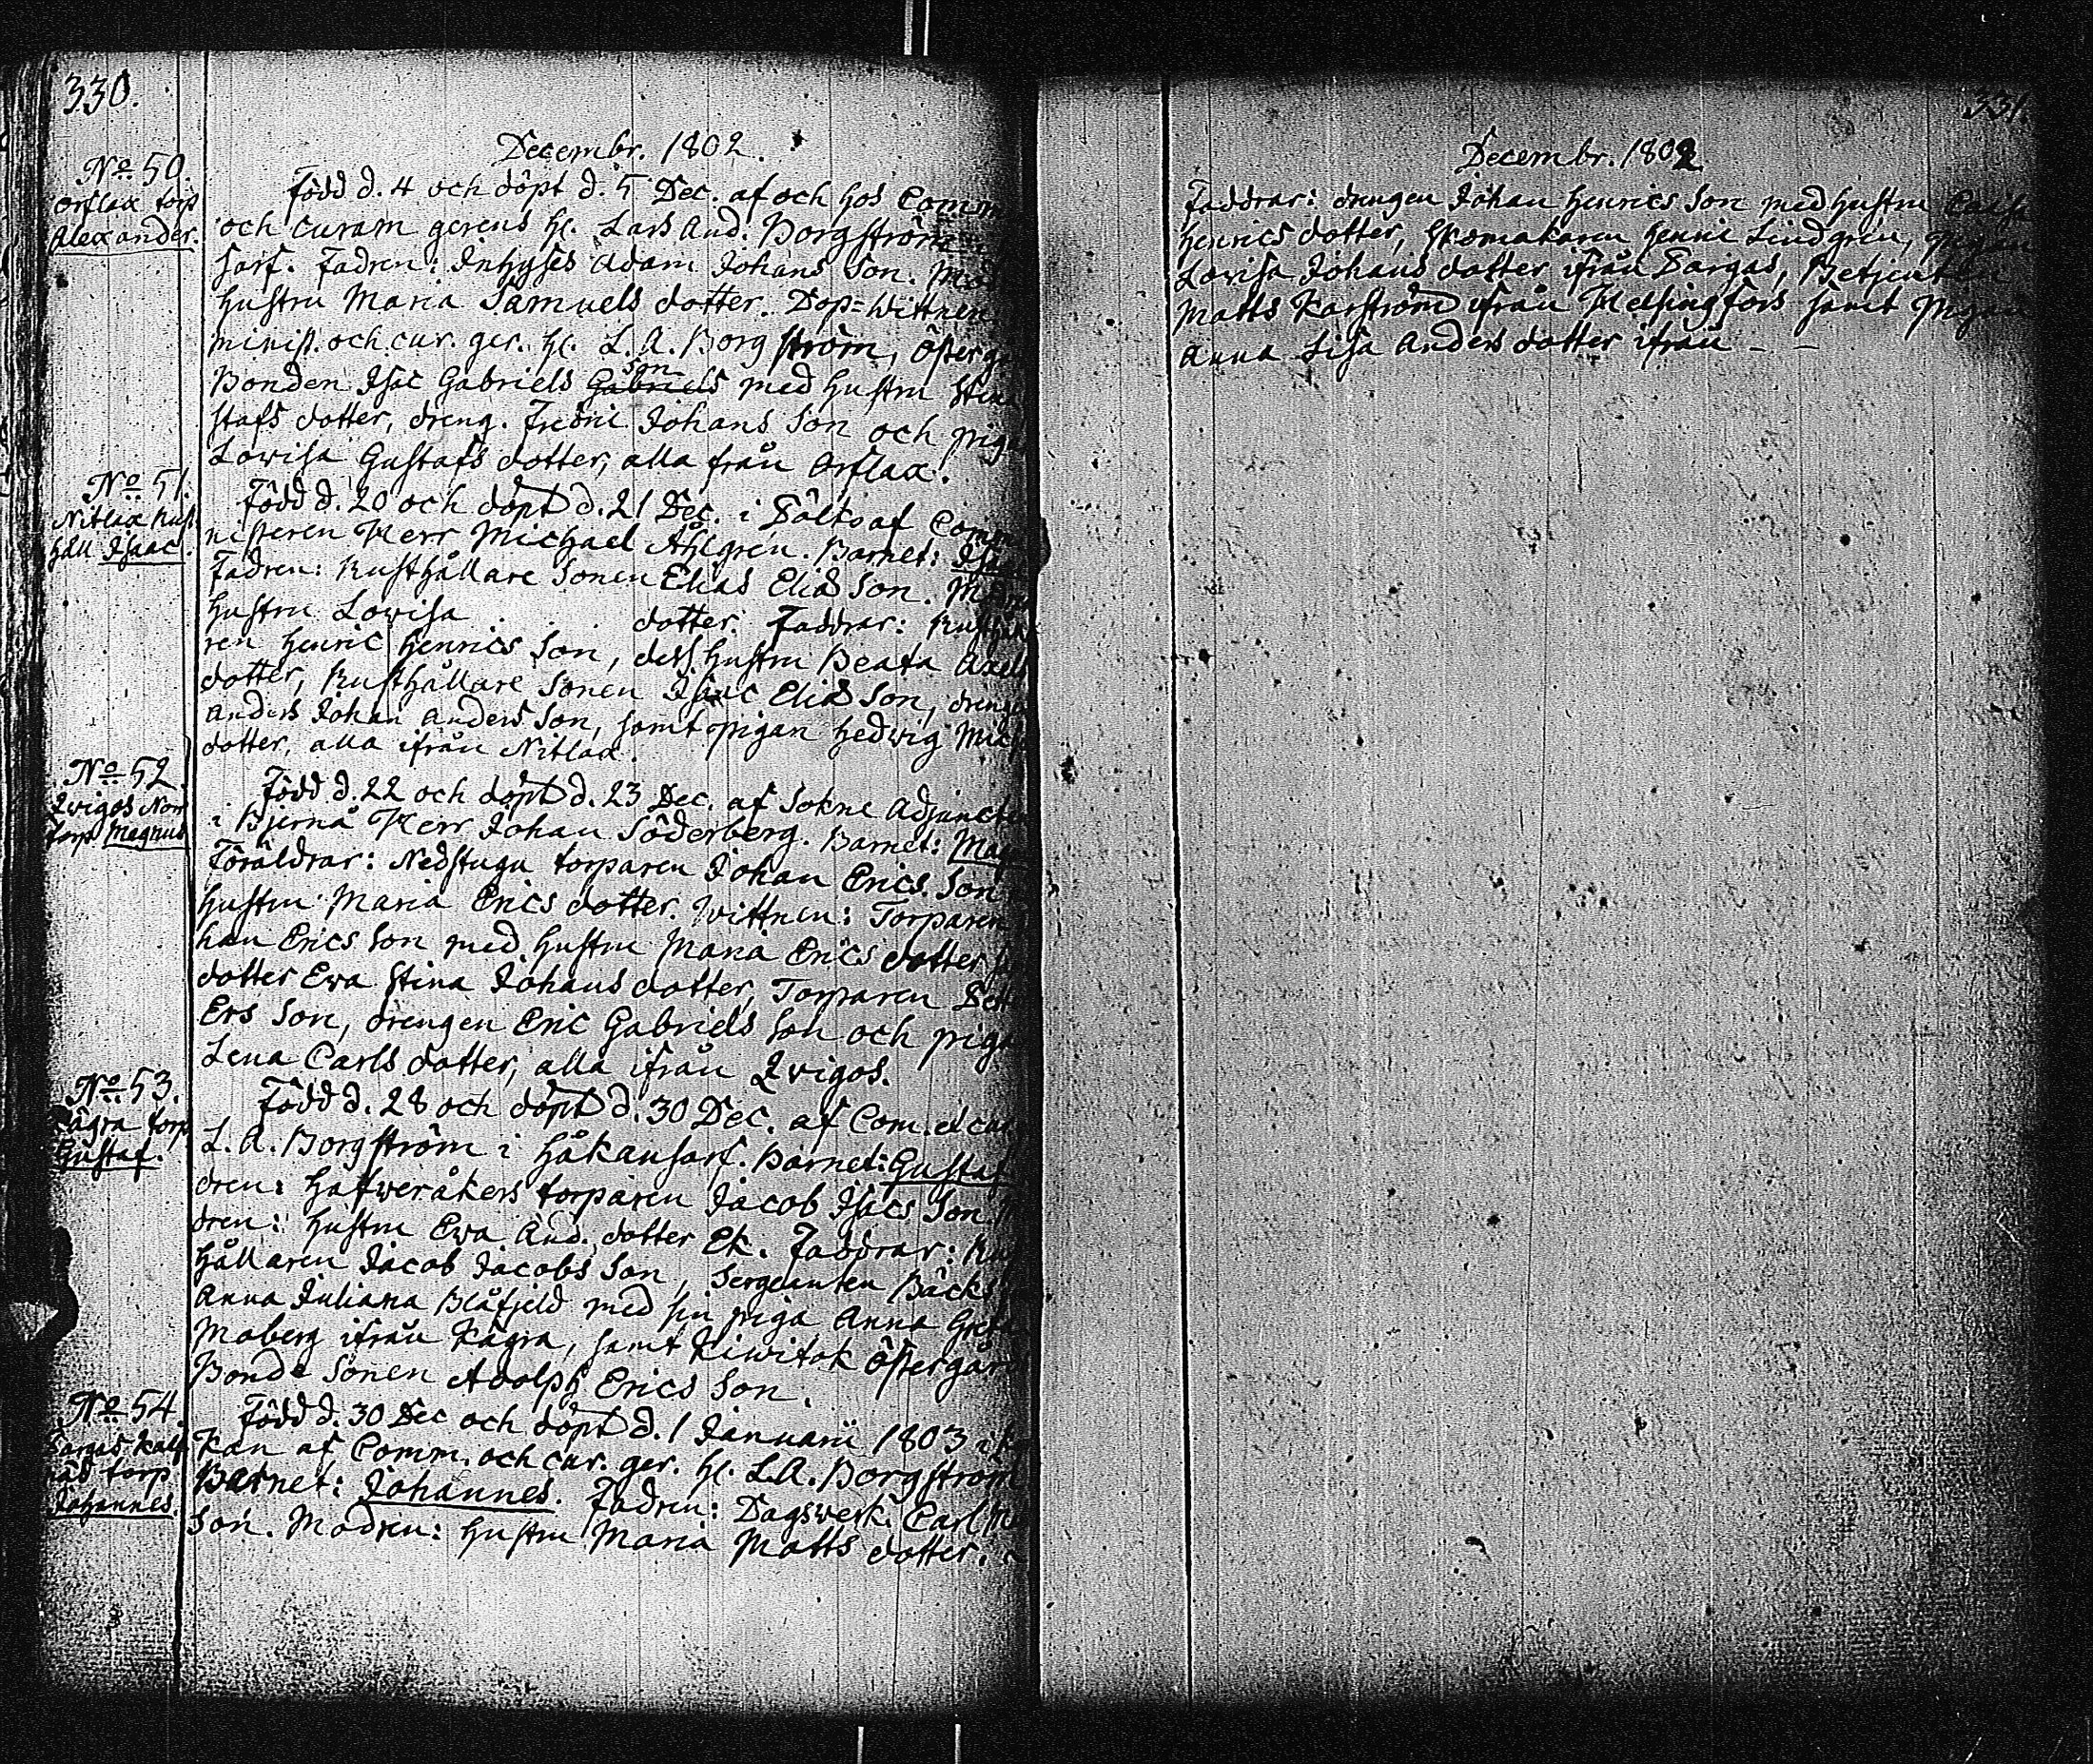 330.
Decembr. 1802.
No. 50.
Orslax torp
Alexander.
Född d. 4 och döpt d. 5 Dec. af och hos Comm
och curam gerens H. Lars And. Borgström
sarf. Fadren: Inhyses Adam Johans Son. Mod
hustru Maria Samuels dotter. Dop-Wittnen
minist. och cur. ger. H. L. A. Borgström, Österg
Bonden Isac Gabriels Gabriels Son med hustru Stina
stafs dotter, dreng. Fredric Johans Son och piga
Lovisa Gustafs dotter, alla från Orslax.
No. 51.
Nitlax Rust
håll Isaac.
Född d. 20 och döpt d. 21 Dec. i af Comm
nisteren Herr Michael Åhlgren. Barnet: Isa
Fadren: Rusthållare Sonen Elias Elias Son. Modren
hustru Lovisa . . . dotter. Faddrar: Rusthålla
ren Henric Henrics Son, dess hustru Beata Axels
dotter, Rusthållare Sonen Isaac Elias Son, drengen
Anders Johan Anders Son, samt pigan Hedvig Mich
dotter, alla ifrån Nitlax.
No. 52.
Qvigos Norr
torp Magnus
Född d. 22 och döpt d. 23 Dec. af Sokne Adjuncten
i Bjernå Herr Johan Söderberg. Barnet: Mag
Föräldrar: Nedstugu torparen Johan Erics Son
hustru Maria Erics dotter. Wittnen: Torparen
han Erics Son med hustru Maria Erics dotter
dotter Ewa Stina Johans dotter, Torparen
Ers Son, drengen Eric Gabriels Son och piga
Lena Carls dotter, alla ifrån Qvigos.
No. 53.
Kågra torp
Gustaf.
Född d. 28 och döpt d. 30 Dec. af Com. et cur
L. A. Borgström i Håkansarf. Barnet: Gustaf
dren: Hafweråkers torparen Jacob Isacs Son.
dren: hustru Ewa And. dotter Ek. Faddrar: Rus
hållaren Jacob Jacobs Son, Sergeanten Bäck
Anna Juliana Blåfjeld med sin piga Anna Greta
Moberg ifrån Kågra, samt Kiwitok Östergård
Bonde Sonen Adolph Erics Son.
No. 54.
Pargas Kalf
näs torp
Johannes.
Född d. 30 Dec och döpt d. 1 Januarii 1803 i
Kan af Comm. och cur. ger. H. L. A. Borgström
Barnet: Johannes. Fadren: Dagswerk. Carl
Son. Modren: hustru Maria Matts dotter.
331.
Decembr. 1802
Faddrar: drengen Johan Henrics Son med hustru Caisa
Henrics dotter, Skomakaren Henric Lindgren, pigan
Lovisa Johans dotter ifrån Pargas, Betjenten
Matts Karström ifrån Helsingfors samt pigan
Anna Lisa Anders dotter ifrån – –